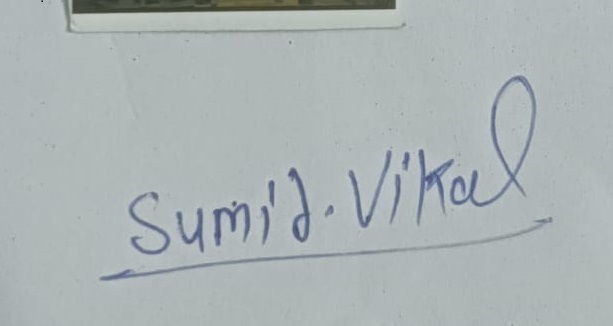 Sumit. Vikal